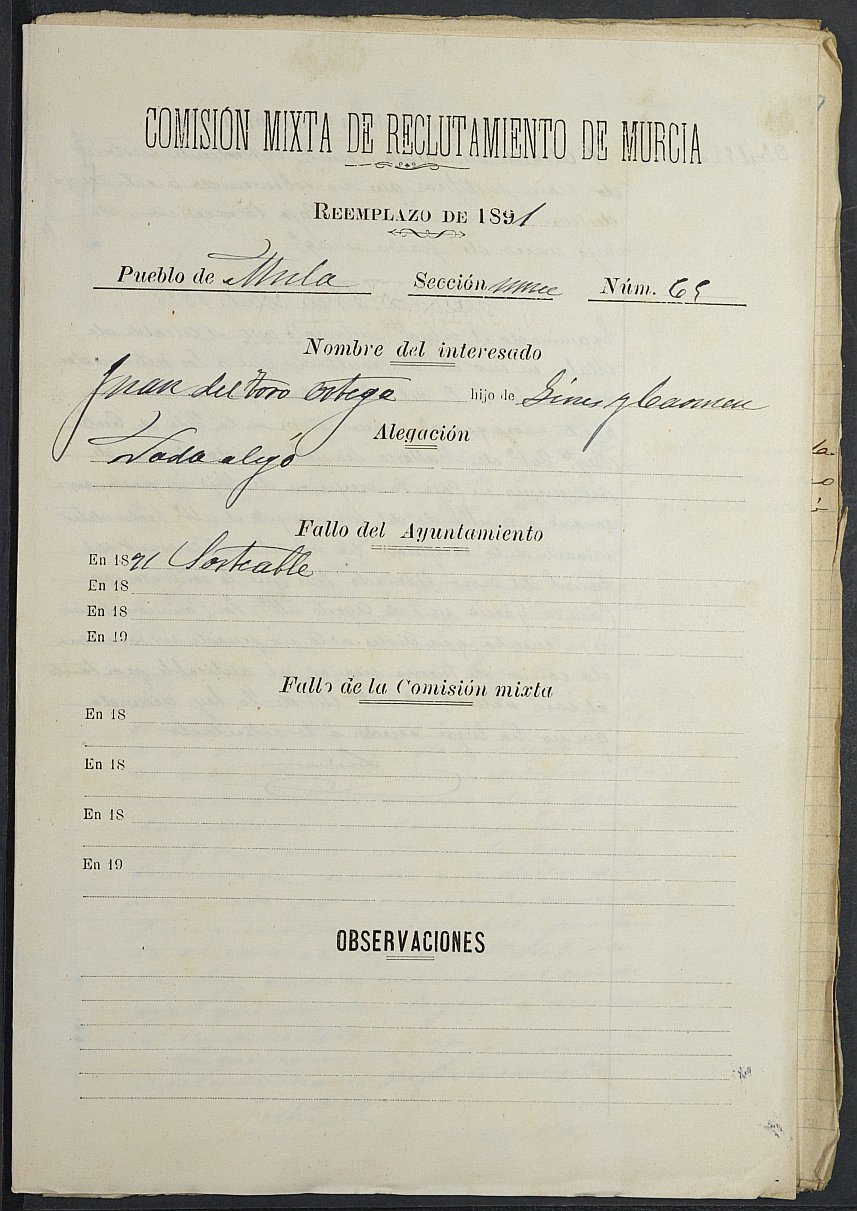 COMISIÓN MIXTA DE RECLUTAMIENTO DE MURCIA
REEMPLAZO DE 1891
Pueblo de Mula Sección Núm. 65
Nombre del interesado
Juan del Toro Ortega hijo de Gines y Carmen
Alegación
Nada alegó
Fallo del Ayuntamiento
En 1891 Sorteable
En 18
En 18
En 19
Fallo de la Comisión mixta
En 18
En 18
En 18
En 19
OBSERVACIONES